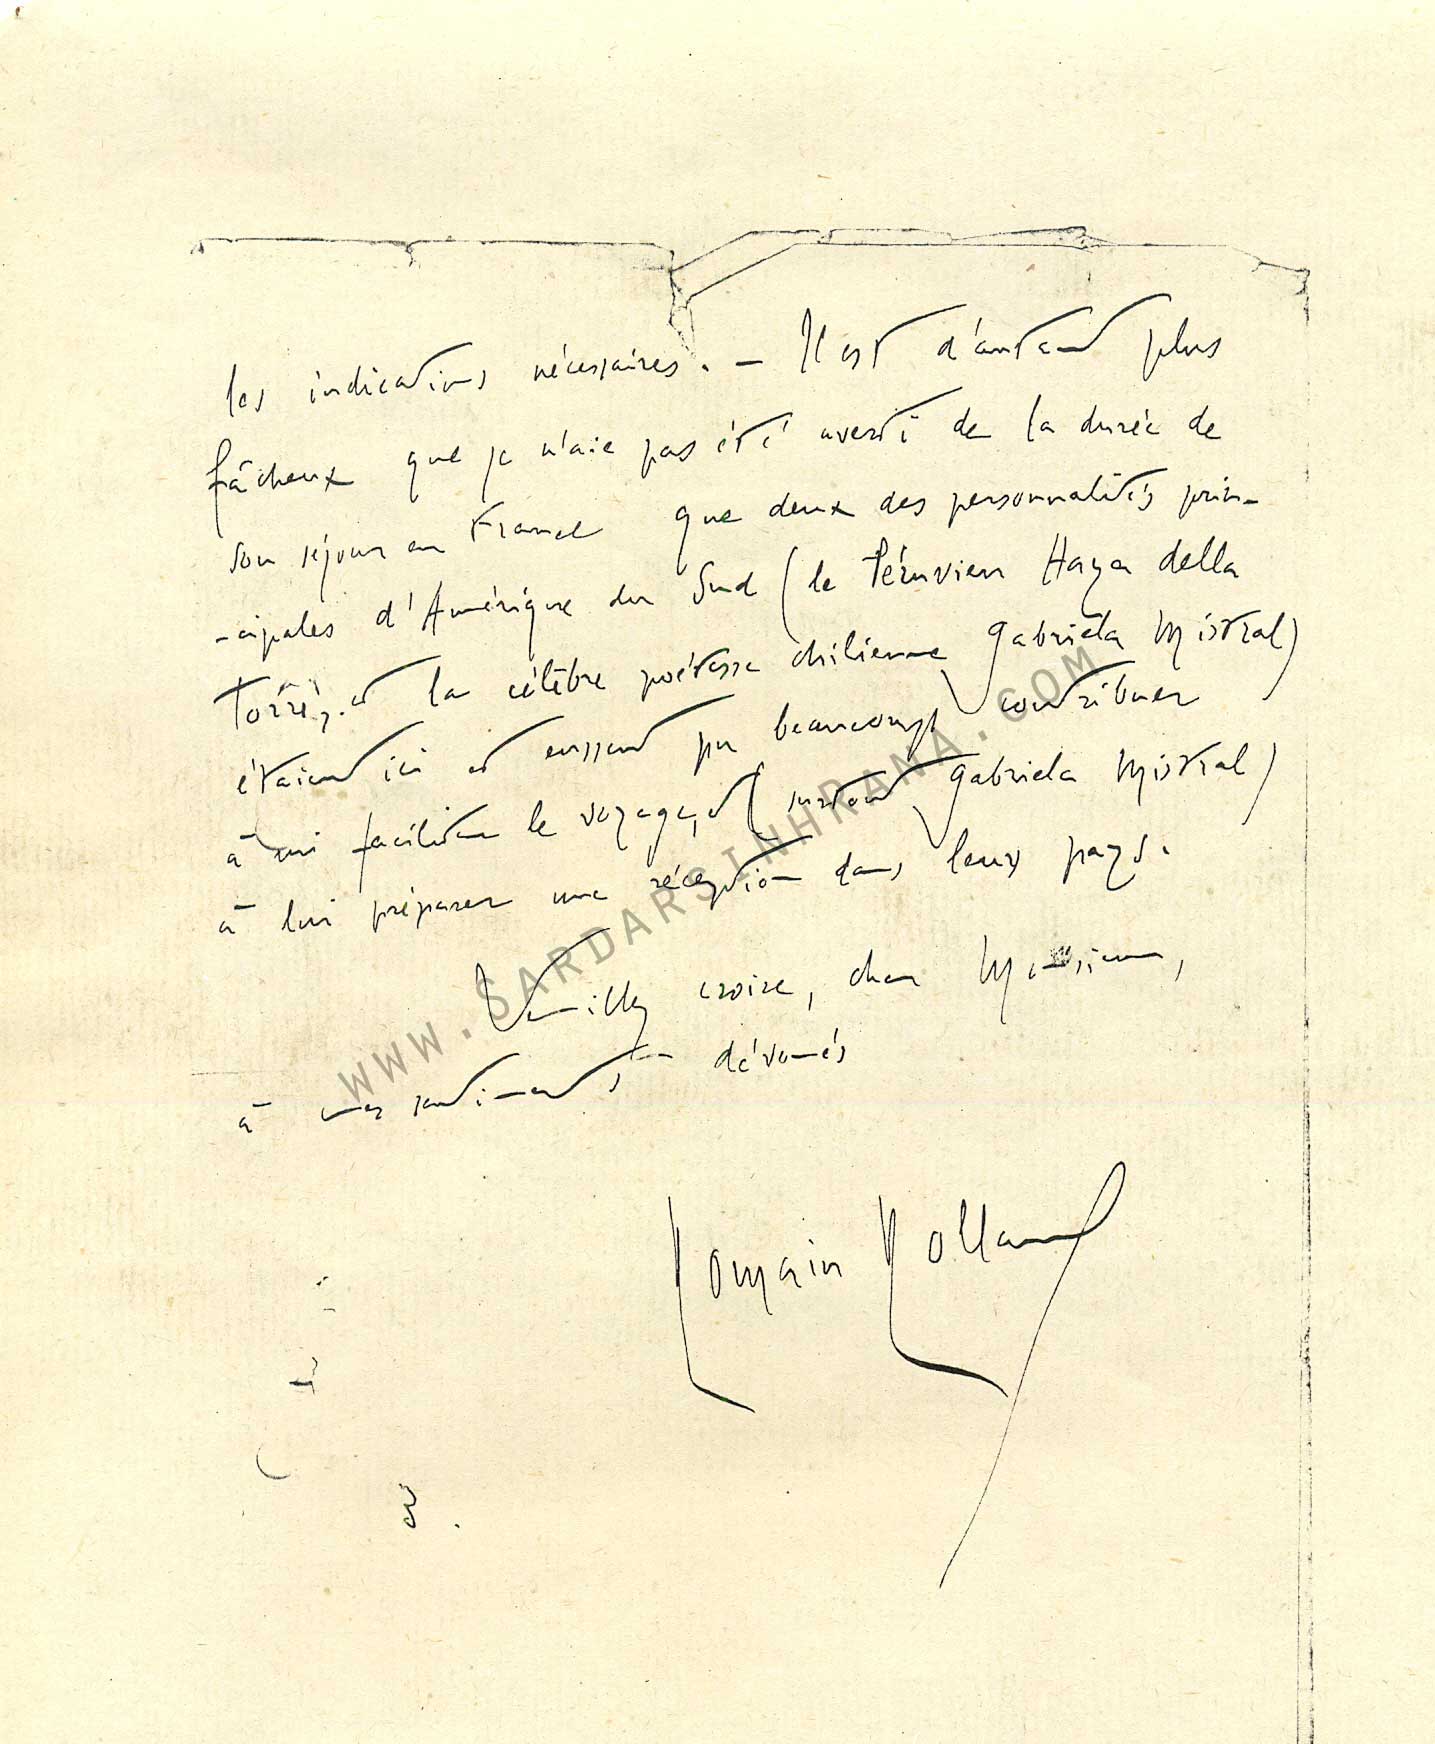 les indications nécessaires. — Il est d'autant plus
fâcheux que je n'aie pas été averti de la durée de
son séjour en France que deux des personnalités prin-
-cipales d'Amérique du Sud (le Péruvien Haya della
Torre, et la célèbre poétesse chilienne Gabriela Mistral)
étaient ici et eussent pu beaucoup contribuer
à lui faciliter le voyage, et (surtout Gabriela Mistral)
à lui préparer une réception dans leurs pays.
Veuillez croire, cher Monsieur,
à mes sentiments dévoués
Romain Rolland
WWW.SARDARSINHRANA.COM